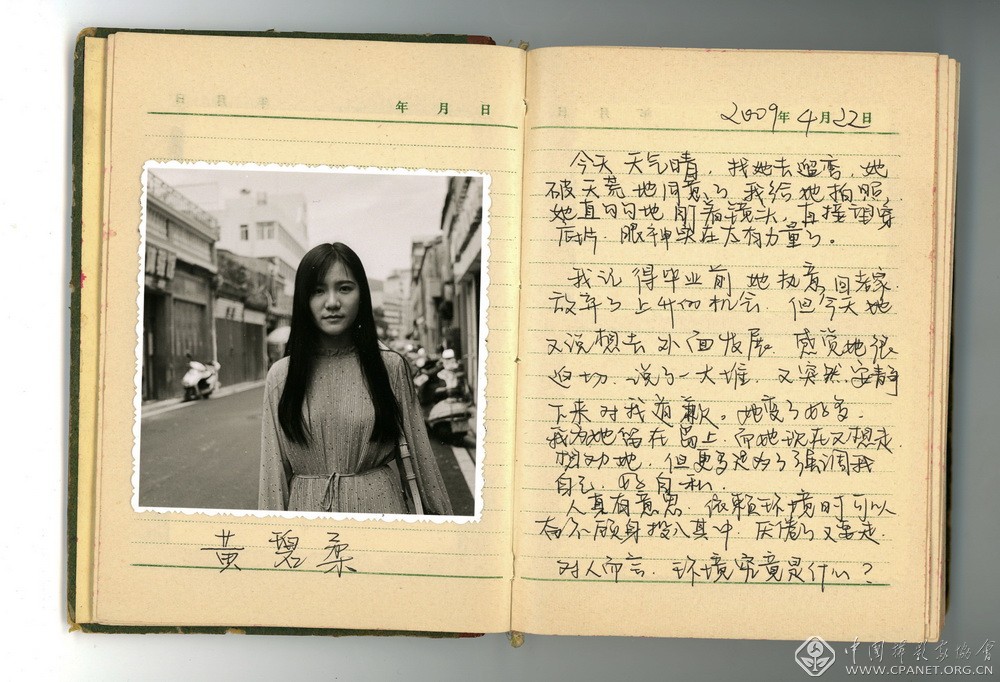 年 月 日
黄碧柔
2009年4月22日
今天 天气晴，找她去逛弯，她
破天荒地同意了，我给她拍照，
她直勾勾地盯着镜头，直接洞穿
底片，眼神实在太有力量了。
我记得毕业前她执意回老家，
放弃了上升的机会，但今天她
又说想去外面发展，感觉她很
迫切，说了一大堆，又突然安静
下来对我道歉。她变了好多，
我为她留在岛上，而她现在又想走，
想劝她，但更多是为了强调我
自己，好自私。
人真有意思，依赖环境时可以
奋不顾身投入其中，厌倦了又要走，
对人而言，环境究竟是什么？
中国摄影家协会
WWW.CPANET.ORG.CN